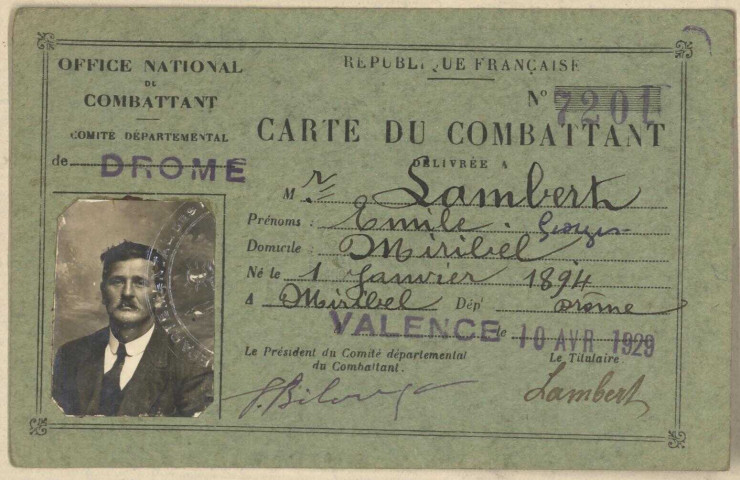 OFFICE NATIONAL
DU
COMBATTANT
COMITÉ DÉPARTEMENTAL
de DROME
RÉPUBLIQUE FRANÇAISE
N° 7201
CARTE DU COMBATTANT
DÉLIVRÉE A
M r Lambert
Prénoms : Emile Georges
Domicile : Miribel
Né le 1 Janvier 1894
A Miribel Dép t Drome
VALENCE le 10 AVR 1929
Le Président du Comité départemental
du Combattant.
Le Titulaire.
Lambert